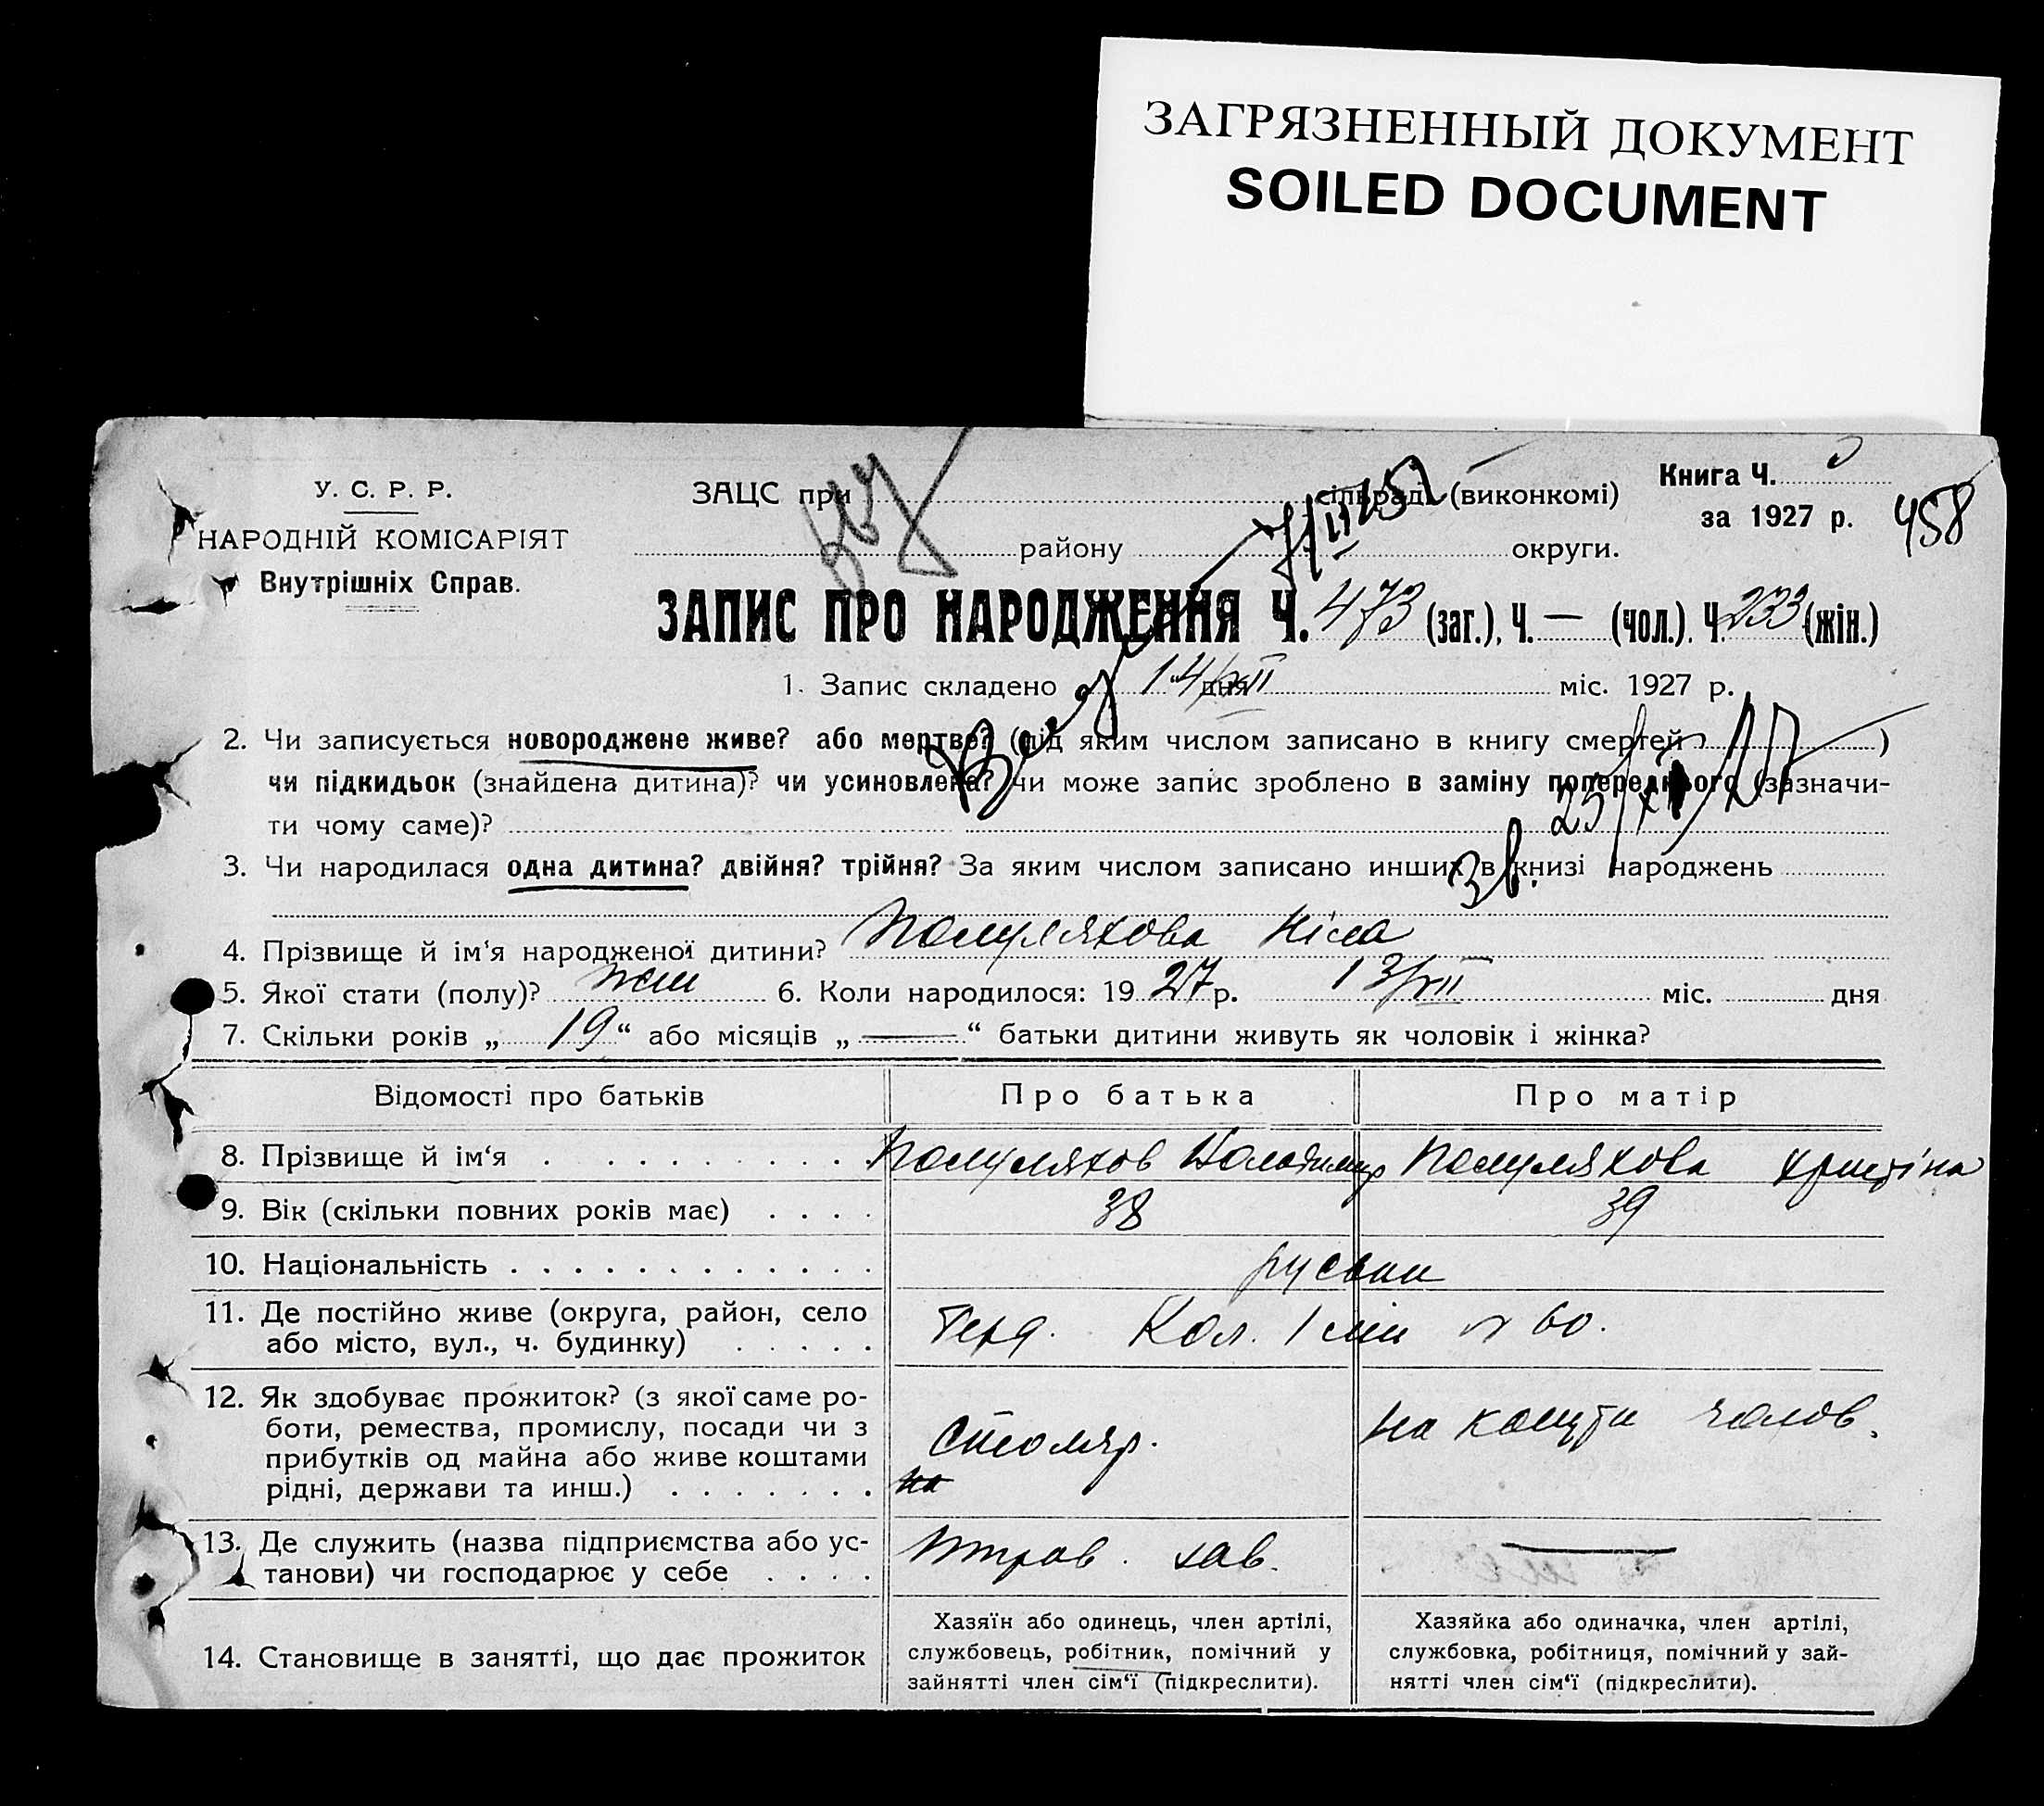 ЗАГРЯЗНЕННЫЙ ДОКУМЕНТ
SOILED DOCUMENT
У. С. Р. Р.
НАРОДНІЙ КОМІСАРІЯТ
Внутрішніх Справ.
ЗАЦС при сільраді (виконкомі)
району округи.
Книга Ч.
за 1927 р.
458
ЗАПИС ПРО НАРОДЖЕННЯ Ч. 473 (заг.), Ч. — (чол.), Ч. 233 (жін.)
1. Запис складено 14/XII дня міс. 1927 р.
2. Чи записується новороджене живе? або мертве? (під яким числом записано в книгу смертей )
чи підкидьок (знайдена дитина)? чи усиновлена? чи може запис зроблено в заміну попереднього (зазначи-
ти чому саме)?
3. Чи народилася одна дитина? двійня? трійня? За яким числом записано инших в книзі народжень
4. Прізвище й ім‘я народженої дитини?
5. Якої стати (полу)? жін 6. Коли народилося: 19 27 р. 13/XII міс. дня
7. Скільки років „ 19 “ або місяців „ — “ батьки дитини живуть як чоловік і жінка?
Відомості про батьків Про батька Про матір
8. Прізвище й ім‘я Володимир Христіна
9. Вік (скільки повних років має) 38 39
10. Національність
11. Де постійно живе (округа, район, село
або місто, вул., ч. будинку) Кол. 1 лін № 60.
12. Як здобуває прожиток? (з якої саме ро-
боти, ремества, промислу, посади чи з
прибутків од майна або живе коштами
рідні, держави та инш.)
Столяр.
на
на кошти чолов.
13. Де служить (назва підприємства або ус-
танови) чи господарює у себе
зав. —
14. Становище в занятті, що дає прожиток
Хазяїн або одинець, член артілі,
службовець, робітник, помічний у
зайнятті член сім‘ї (підкреслити).
Хазяйка або одиначка, член артілі,
службовка, робітниця, помічний у зай-
нятті член сім‘ї (підкреслити).